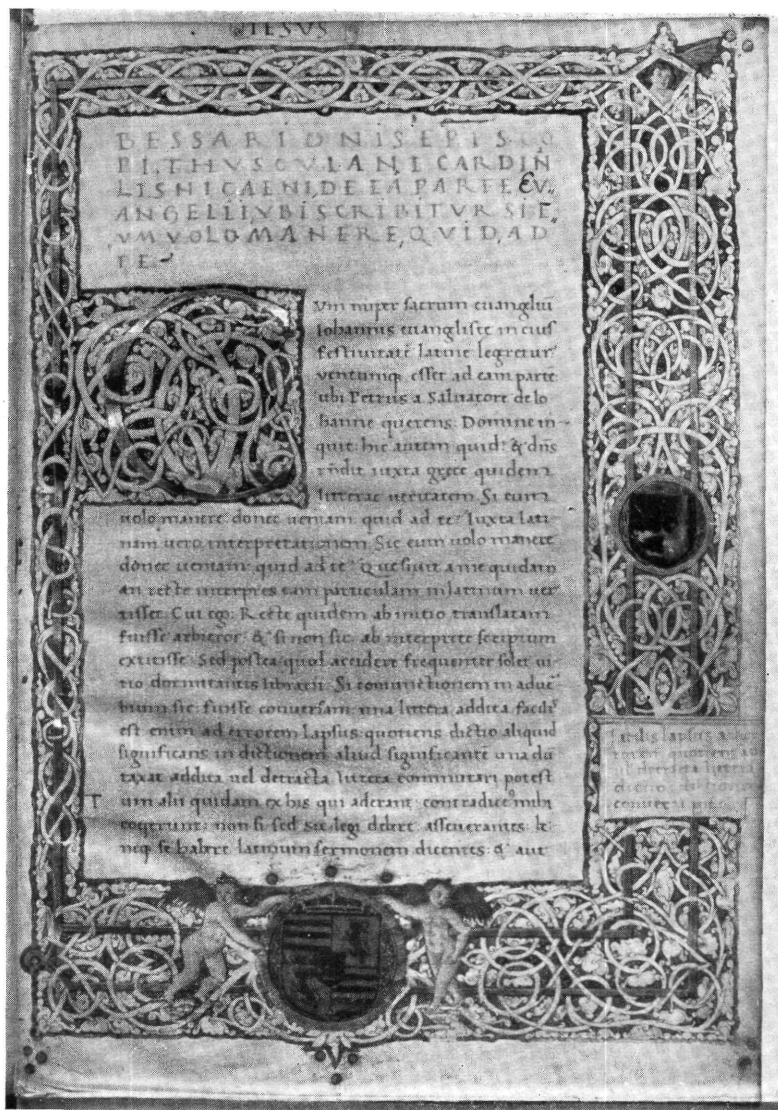 IESVS
BESSARIONIS EPISCO
PI, THVSCVLANI CARDIN
LIS NICAENI, DE EA PARTE EV
ANGELII VBI SCRIBITVR SI E
VM VOLO MANERE, QVID, AD
TE
Vm nuper sacrum euangliũ
Iohannis euangliste in eius
festiuitate latine legretur
uentumq; esset ad eam parte
ubi Petrus a Saluatore de Io
hanne querens: Domine in
quit: hic autem quid? & dñs
rñdit iuxta grece quidem
litterae ueritatem. Si eum
uolo manere donec ueniam quid ad te? Iuxta lati
nam uero interpretationem. Sic eum uolo manere
donec ueniam: quid ad te? Quesiuit a me quidam
an recte interpres eam particulam in latinum uer
tisset. Cui ego: Recte quidem ab initio translatam
fuisse arbitror: & si non sic ab interprete scriptum
extitisse. Sed postea quod accidere frequenter solet ui
tio dormitantis librarii. Si coniunctionem in aduer
bium sic fuisse conuersam una littera addita facilis
est enim ad errorem lapsus: quotiens dictio aliquid
significans in dictionem aliud significante una dũ
taxat addita uel detracta littera commutari potest
T um alii quidam ex his qui aderant contradice mihi
ceperunt: non si sed sic legi debere asseuerantes: it
neq; se habere latinum sermonem dicentes: & aut
facilis lapsus
quotiens
littera
dictio